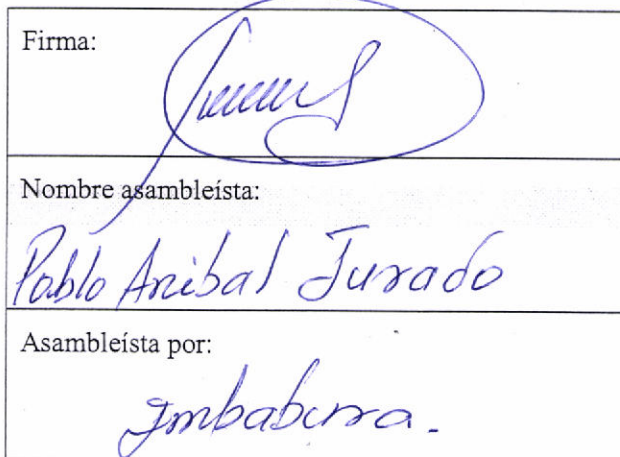 Firma:
Nombre asambleísta:
Pablo Anibal Jurado
Asambleísta por:
Imbabura.